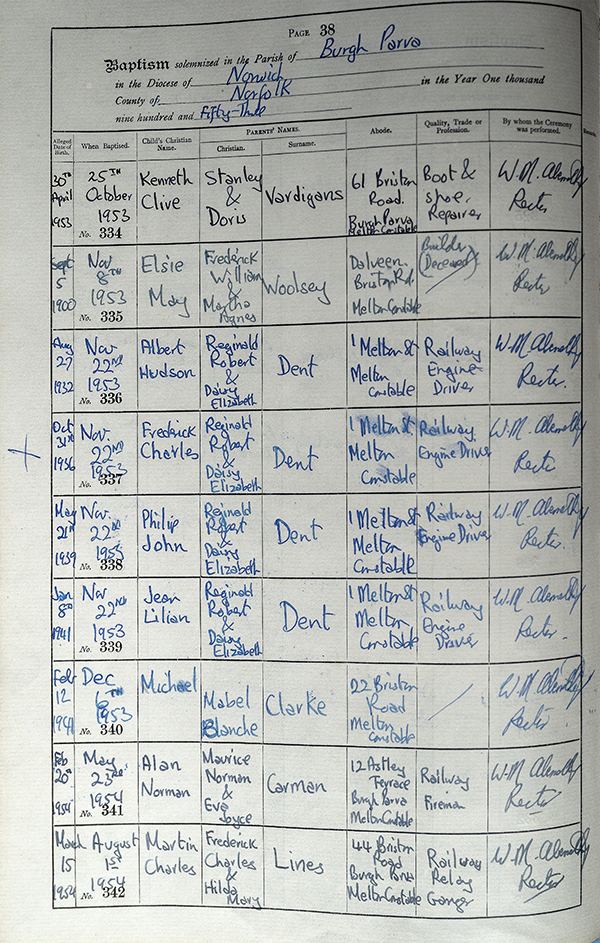 PAGE 38
Baptism solemnized in the Parish of Burgh Parva
in the Diocese of Norwich in the Year One thousand
County of Norfolk
nine hundred and Fifty-Three
Alleged Date of Birth. When Baptised. Child's Christian Name. PARENTS' NAMES. Christian. Surname. Abode. Quality, Trade or Profession. By whom the Ceremony was performed. Remarks
30TH April 1953
25TH October 1953
No. 334
Kenneth Clive
Stanley & Doris
Vardigans
61 Briston Road. Burgh Parva Melton Constable
Boot & shoe. Repairer
W. M.
Rector
Sept 5 1900
Nov 8TH 1953
No. 335
Elsie May
Frederick William & Martha Agnes
Woolsey
Dalveen. Briston Rd. Melton Constable
Builder (Deceased)
W. M.
Rector
Aug 27 1932
Nov 22ND 1953
No. 336
Albert Hudson
Reginald Robert & Daisy Elizabeth
Dent
1 Melton St Melton Constable
Railway Engine Driver
W. M.
Rector.
Oct 31st 1936
Nov. 22ND 1953
No. 337
Frederick Charles
Reginald Robert & Daisy Elizabeth
Dent
1 Melton St. Melton Constable
Railway. Engine Driver
W. M.
Rector
May 21st 1939
Nov. 22ND 1953
No. 338
Philip John
Reginald Robert & Daisy Elizabeth
Dent
1 Melton St Melton Constable
Railway Engine Driver
W. M.
Rector.
Jan 8th 1941
Nov 22ND 1953
No. 339
Jean Lilian
Reginald Robert & Daisy Elizabeth
Dent
1 Melton St Melton, Constable
Railway Engine Driver
W. M.
Rector.
Feb 12 1941
Dec 6TH 1953
No. 340
Michael
Mabel Blanche
Clarke
22 Briston Road Melton Constable
W. M.
Rector.
Feb 20th 1954
May 23rd 1954
No. 341
Alan Norman
Maurice Norman & Eva Joyce
Carman
12 Astley Terrace Burgh Parva Melton Constable
Railway Fireman
W. M.
Rector
March 15 1954
August 1st 1954
No. 342
Martin Charles
Frederick Charles & Hilda Mary
Lines
44 Briston Road Burgh Parva Melton Constable
Railway Relay Ganger
W. M.
Rector